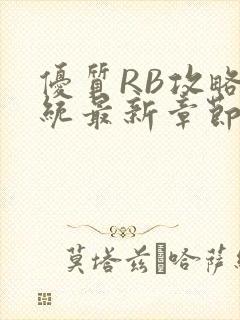 優質RB攻略
統最新章節
莫塔茲·哈薩